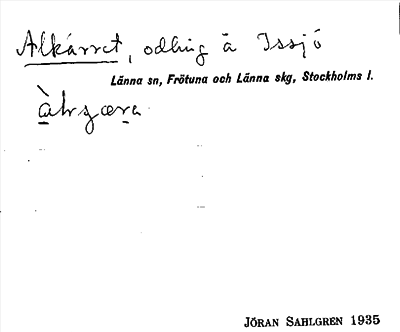 Alkärret, odling å Issjö
Länna sn, Frötuna och Länna skg, Stockholms l.
JÖRAN SAHLGREN 1935